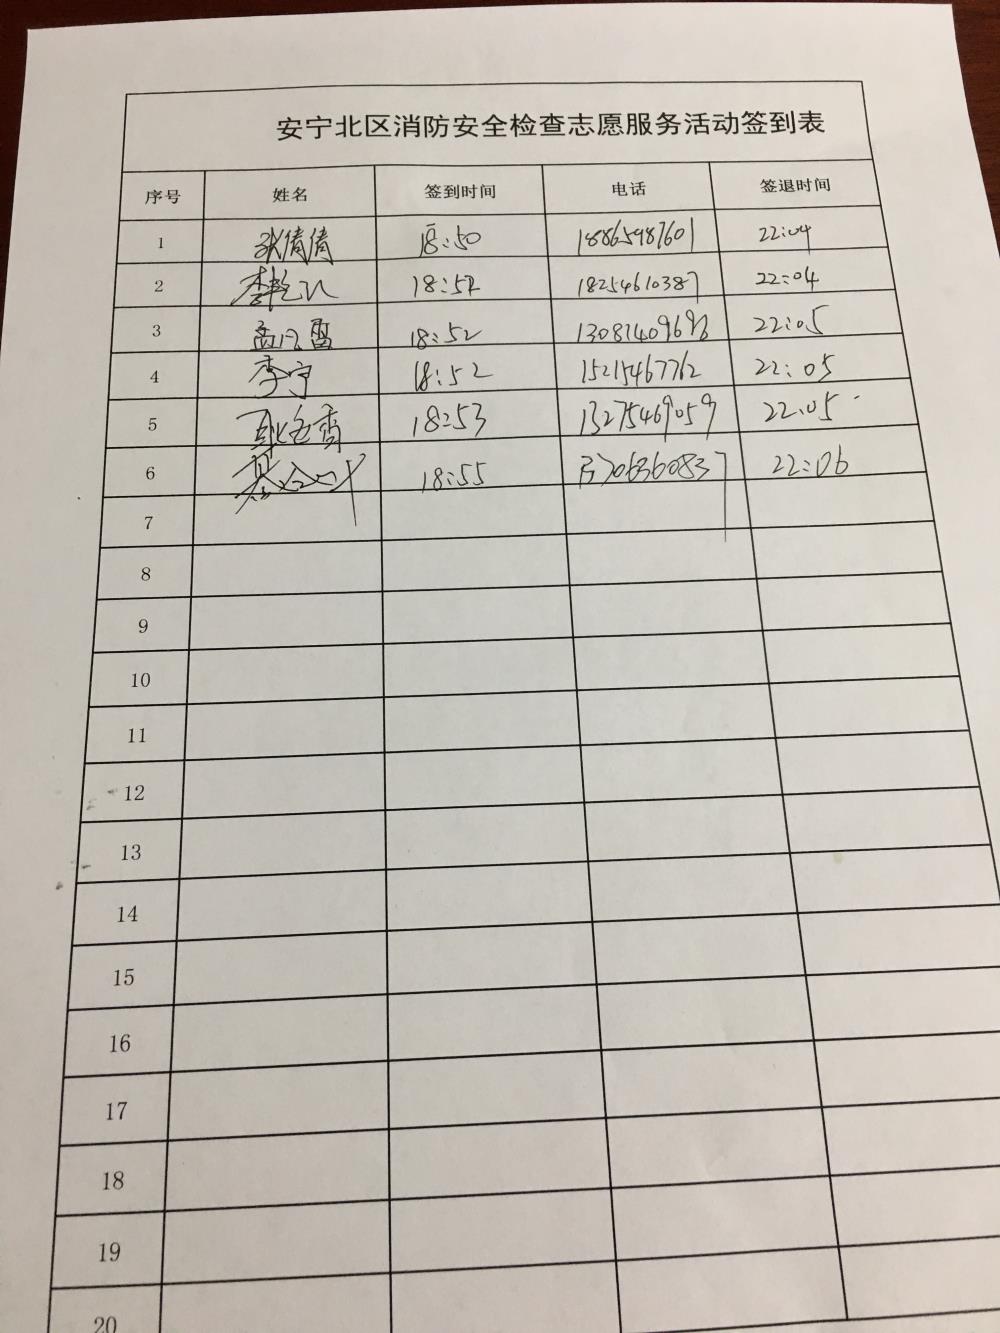 安宁北区消防安全检查志愿服务活动签到表
序号 姓名 签到时间 电话 签退时间
1 张倩倩 18:50 18865987601 22:04
2 李 18:52 18254610387 22:04
3 18:52 22:05
4 李宁 18:52 15215467762 22:05
5 18:53 13275469059 22:05
6 18:55 22:06
7
8
9
10
11
12
13
14
15
16
17
18
19
20